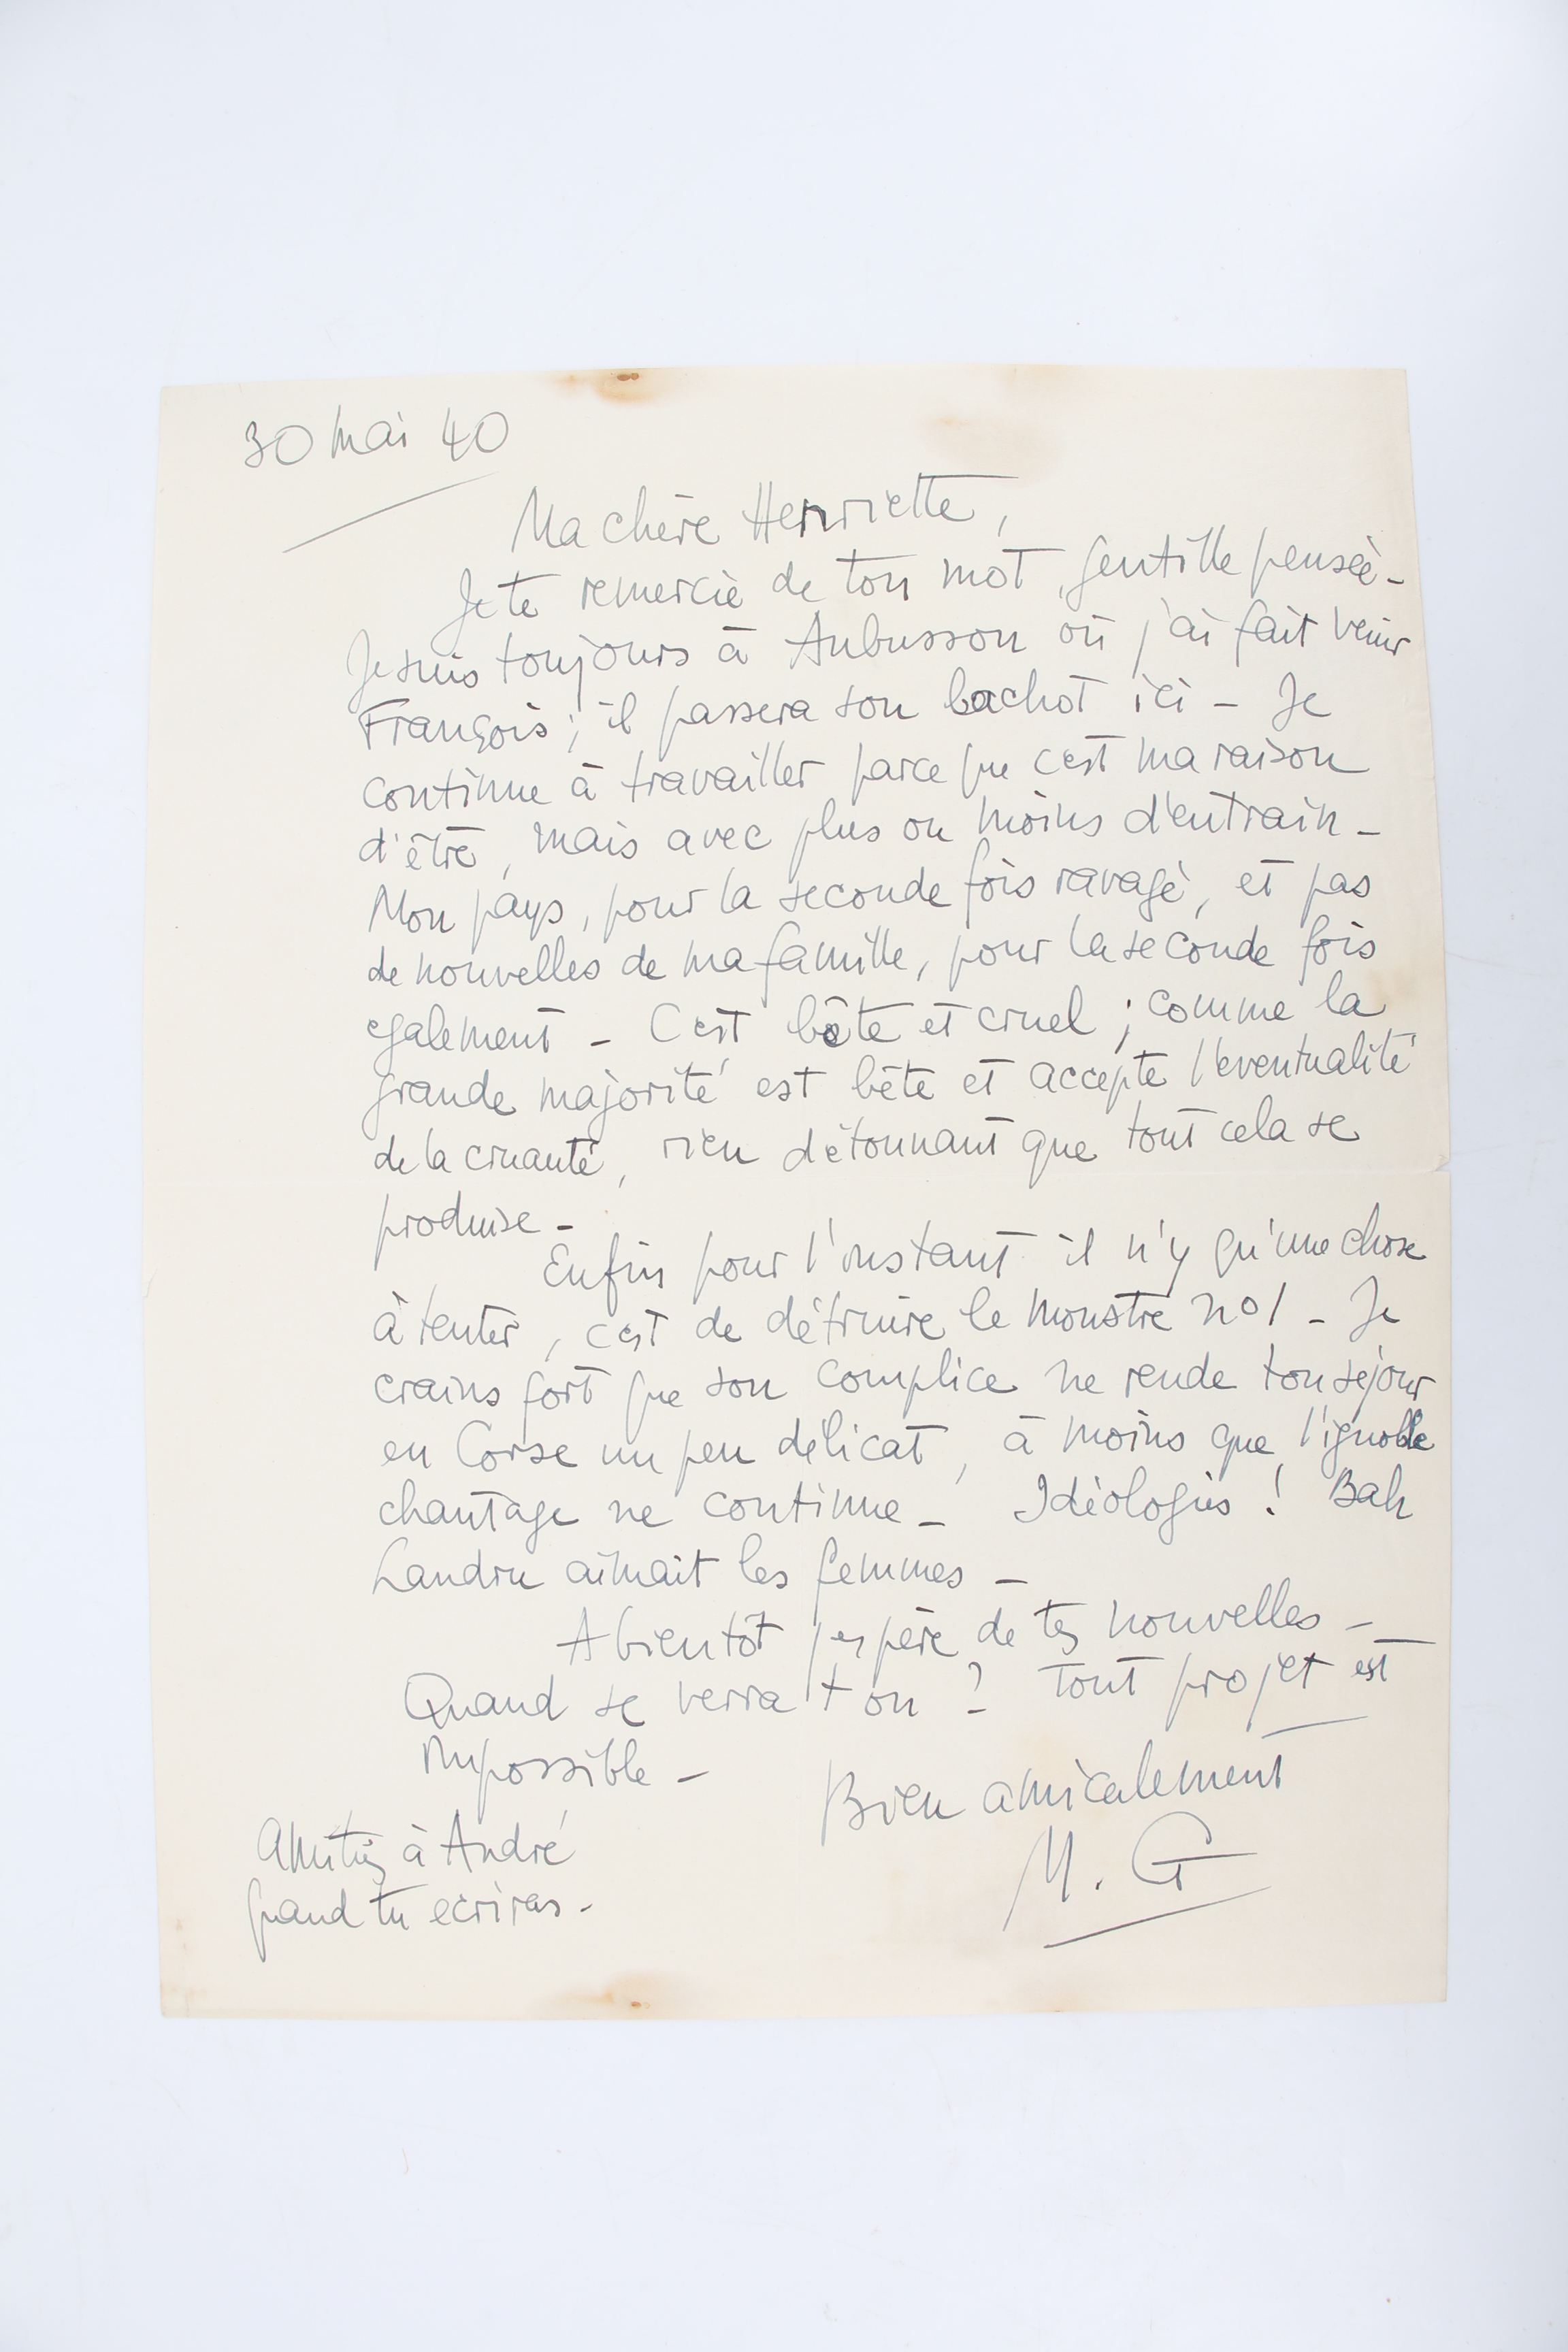 30 mai 40
Ma chère Henriette,
Je te remercie de ton mot, gentille pensée -
Je suis toujours à Aubusson où j'ai fait venir
François ; il passera son bachot ici - Je
continue à travailler parce que c'est ma raison
d'être, mais avec plus ou moins d'entrain -
Mon pays, pour la seconde fois ravagé, et pas
de nouvelles de ma famille, pour la seconde fois
egalement - C'est bête et cruel ; comme la
grande majorité est bête et accepte l'eventualité
de la cruauté, rien détonnant que tout cela se
produise -
Enfin pour l'instant il n'y qu'une chose
à tenter, c'est de détruire le monstre no 1 - Je
crains fort que son complice ne rende ton séjour
en Corse un peu délicat, à moins que l'ignoble
chantage ne continue - Idéologies ! Bah
Landru aimait les femmes -
A bientôt j'espère de tes nouvelles -
Quand se verra t on ? tout projet est
impossible -
Bien amicalement
M. G
Amitiés à André
quand tu ecriras -